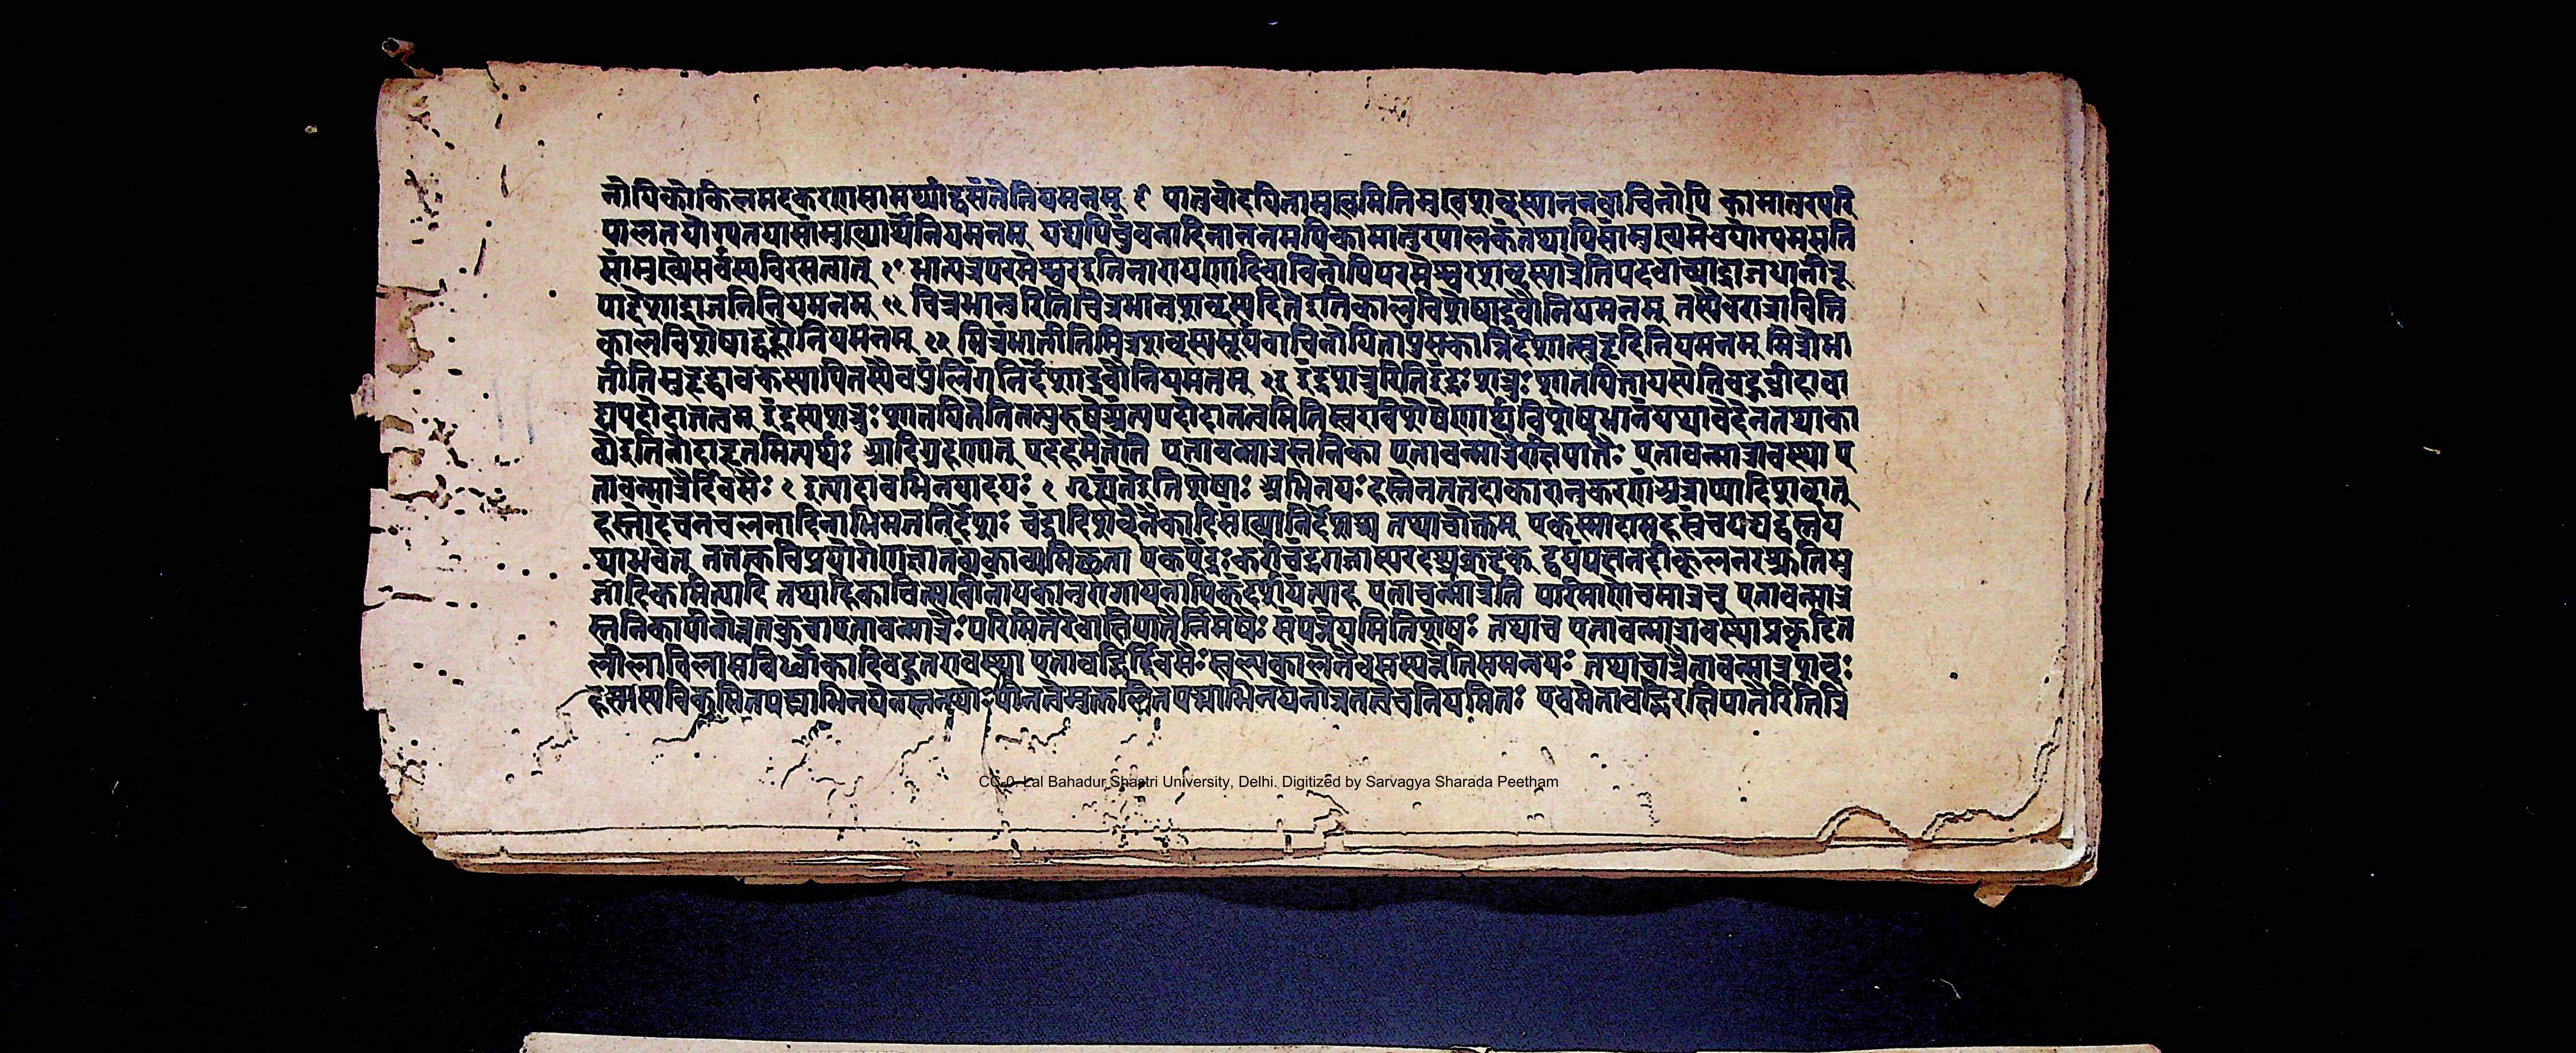 नोपिकोकिलमदकरणसामर्थ्याद्वसंतेनियमनम् ९ पातुवोदयितामुखमितिमुखशब्दस्याननवाचिनोपि कामातुरपरि
पालनयोग्यतयासांमुख्यार्थेनियमनम् यद्यपिचुंबनादिनाननमपिकामातुरपालकंतथापिसांमुख्यमेवयोग्यमसति
सांमुख्येसर्वस्यविरसत्वात् १॰ भात्यत्रपरमेश्वरइतिनारायणादिवाचिनोपिपरमेश्वरशब्दस्यात्रेतिपदवाच्याद्राजधानीरू
पाद्देशाद्राजनिनियमनम् ११ चित्रभानुरितिचित्रभानुशब्दस्यदिनेइतिकालविशेषाद्रवौनियमनम् तस्यैवरात्रावितति
कालविशेषाद्वह्नौनियमनम् १२ मित्रंभातीतिमित्रशब्दस्यसूर्यवाचिनोपिनपुंसकान्निर्देशात्सुहृदिनियमनम् मित्रोभा
तीतिसुहृद्वाचकस्यापितस्यैवपुंलिंगनिर्देशाद्रवौनियमनम् १३ इंद्रशत्रुरितिइंद्रः शत्रुः शातयितायस्येतिबहुव्रीहावा
द्यपदोदात्तत्वम् इंद्रस्यशत्रुः शातयितेतितत्पुरुषेअंत्यपदोदात्तत्वमितिस्वराविशेषेणार्थविशेषभानंयथावेदेनतथाका
व्येइतिनोदाहृतमित्यर्थः आदिग्रहणात् एद्दहमेत्तेति एतावन्मात्रस्तनिका एतावन्मात्रैरक्षिपातैः एतावन्मात्रावस्था ए
तावन्मात्रैर्दिवसैः १ इत्यादावभिनयादयः १ गृह्यंतेइतिशेषाः अभिनयः हस्तेनतत्तदाकारानुकरणंअत्राप्यादिशब्दात्
हस्तोदंचनचलनादिनाभिमतनिर्देशः चंद्रादिशब्देनैकादिसंख्यानिर्देशश्च तथाचोक्तम् एकस्मादासहस्रंचयद्यद्वस्तुय
थाभवेत् तत्तत्कविप्रयोगेणज्ञातव्यंकाव्यमिछता एकऐंदुः करीचंद्रगजास्यरदशुक्रदृक् द्वयंपक्षनदीकूलनरश्रुतिभु
जादिकमित्यादि तथाहिकाचित्सखींनायकानुरागायनायिकांदर्शयंत्याह एतावन्मात्रेति परिमाणेचमात्रच् एतावन्मात्र
स्तनिकापीनोन्नतकुचाएतावन्मात्रैः परिमितैरेवाक्षिपातैर्निमेषैः संपन्नेयमितिशेषः तथाच एतावन्मात्रावस्थाप्रकृदित
लीलाविलासबिब्बोकादिबहुतरावस्था एतावद्भिर्दिवसैः स्वल्पकालेनैवसंपन्नेतिसमन्वयः तथाचात्रैतावन्मात्रशब्दः
हस्तस्यविकसितपद्माभिनयेनस्तनयोः पीनत्वेमुकुलितपद्माभिनयेनोन्नतत्वेचनियमितः एवमेतावद्भिरक्षिपातैरितित्रि
CC-0. Lal Bahadur Shastri University, Delhi. Digitized by Sarvagya Sharada Peetham